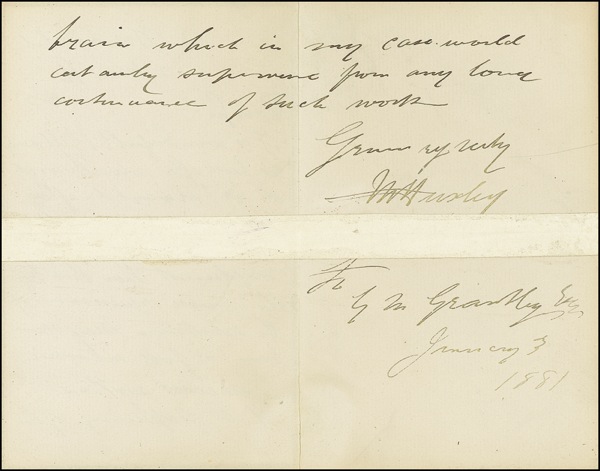 brain which in my case would
certainly supervene from any long
continuance of such work
Yours very truly
T H Huxley
To
G M Grantley Esq
January 3
1881